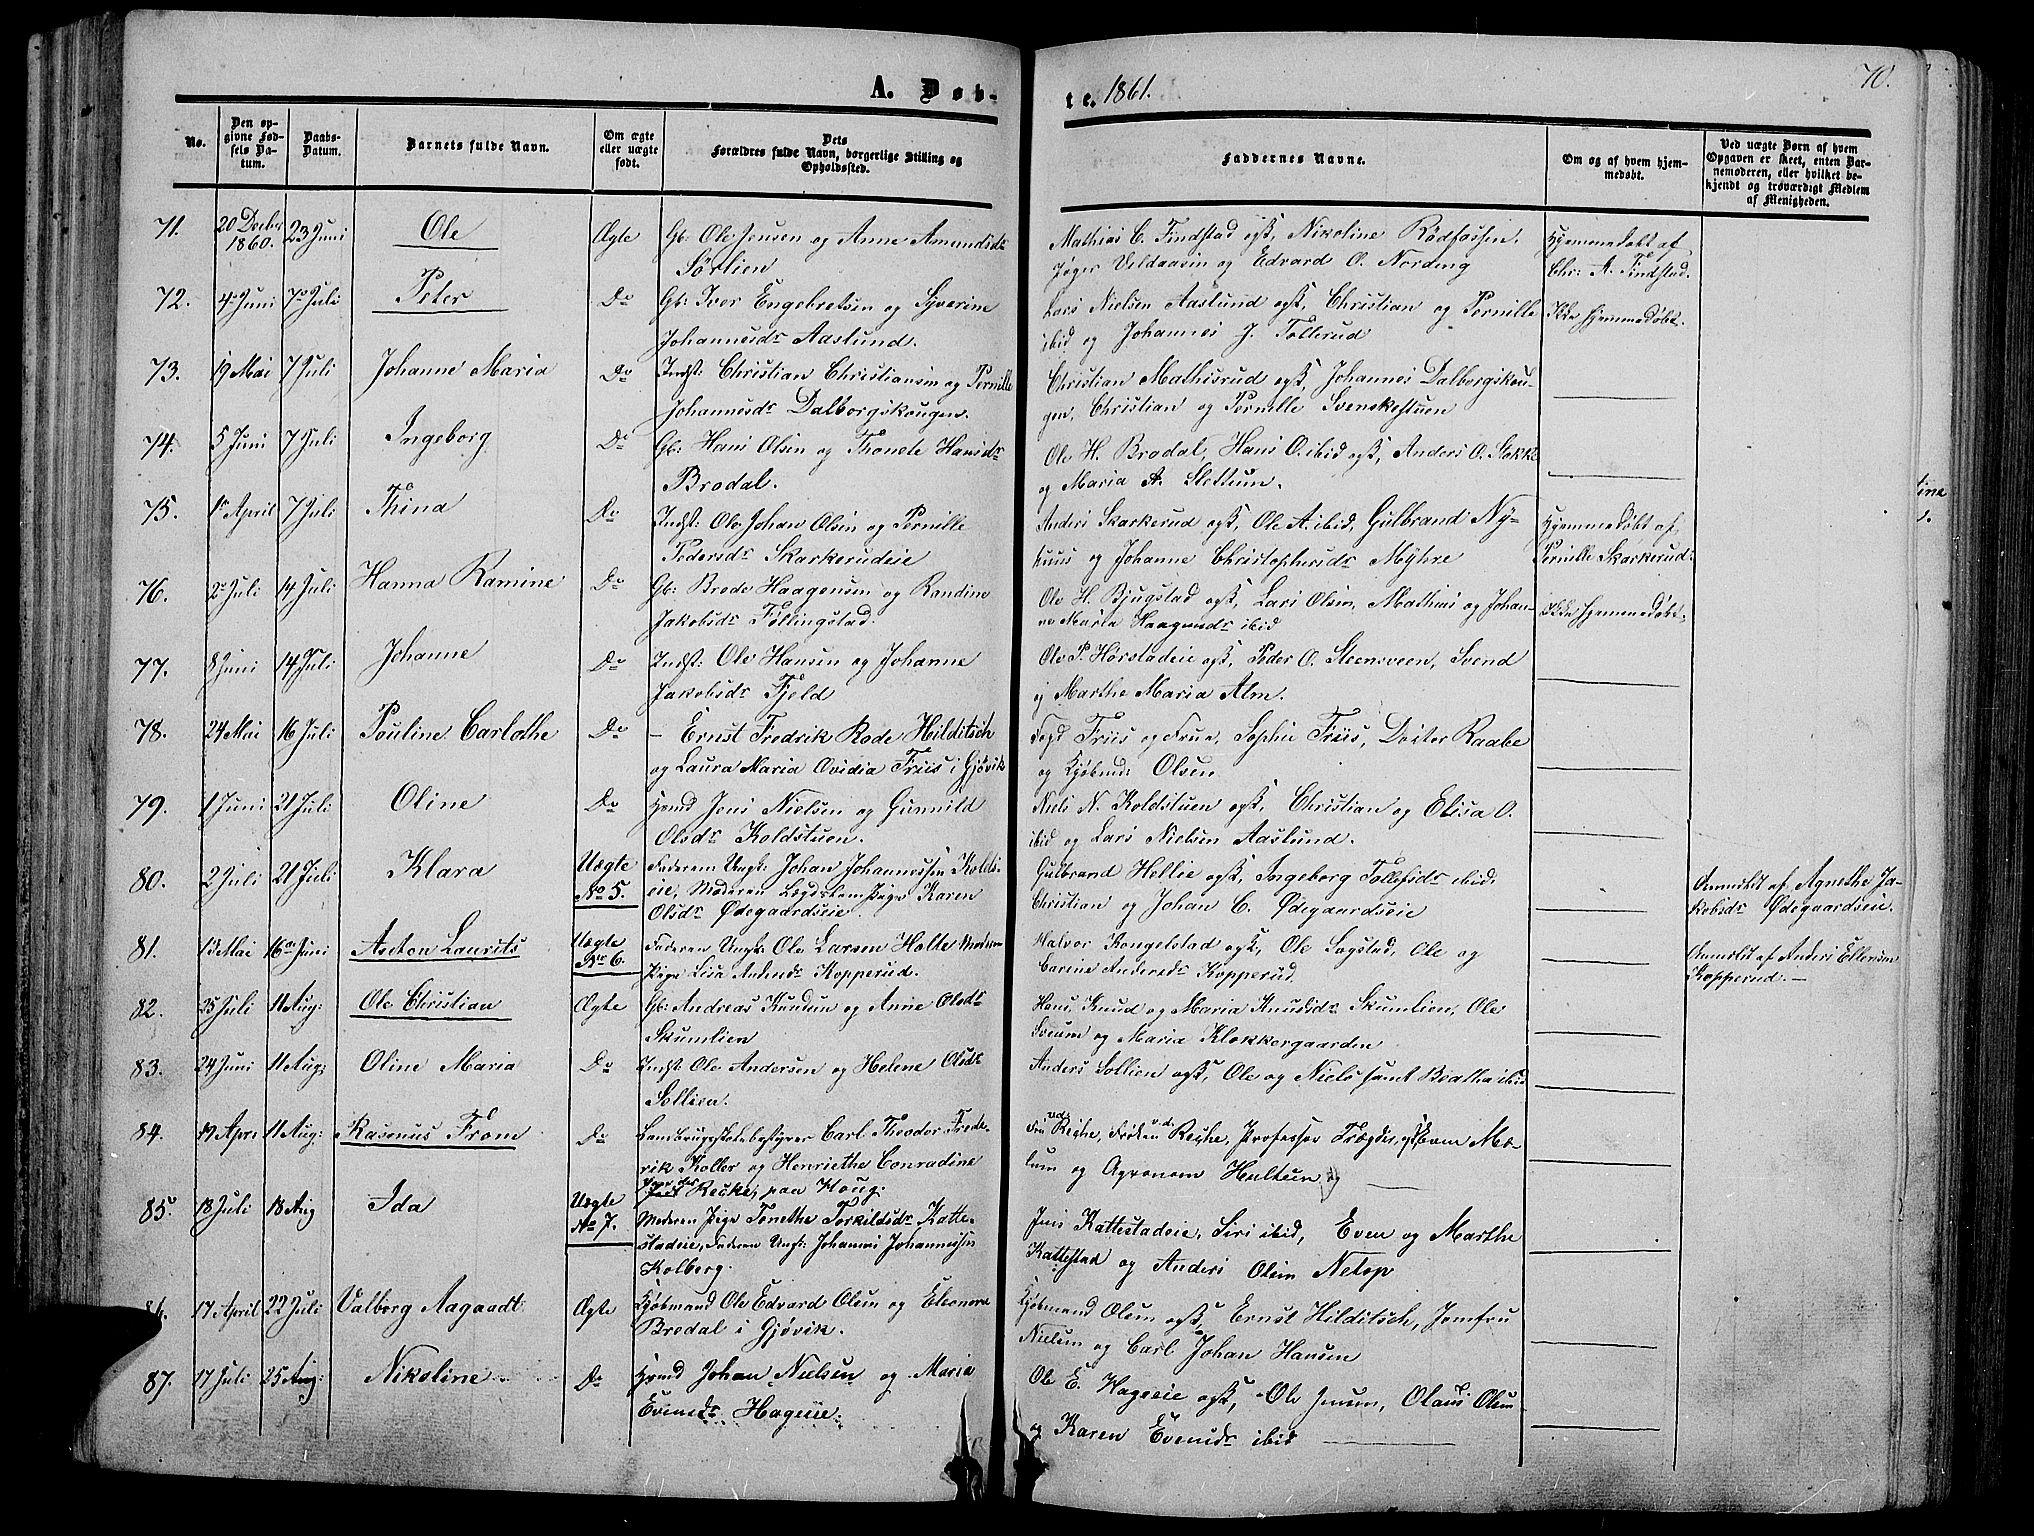 A. Døb-
te. 1861.
70.
No.
Den op-
givne Fød-
sels Da-
tum.
Daabs-
Datum.
Barnets fulde Navn.
Om ægte
eller uægte
født.
Dets
Forældres fulde Navn, borgerlige Stilling og
Opholdssted.
Faddernes Navne.
Om og af hvem hjem-
medøbt.
Ved uægte Børn af hvem
Opgaven er skeet, enten Bar-
nemoderen, eller hvilket be-
kjendt og troværdigt Medlem
af Menigheden.
71. 20 Decber 1860. 23 Juni Ole Ægte Gb: Ole Jensen og Anne Amundsdr
Sørlien
Mathias C. Findstad ogs, Nikoline Rødfossen,
og Edvard O. Nording
Hjemmedøbt af
Chr: A. Findstad.
72. 4de Juni 7de Juli Peter Do Gb: Iver Engebretsen og Syverine
Johannesdr Aaslund.
Lars Nielsen Aaslund ogs, Christian og Pernille
ibid og Johannes J. Tollerud
Ikke hjemmedøbt.
73. 19 Mai 7 Juli Johanne Maria Do Indst: Christian Christiansen og Pernille
Johannesdr Dalborgskougen.
Christian Mathisrud ogs, Johannes Dalborgskou-
gen, Christian og Pernille Svenskestuen
74. 5 Juni 7 Juli Ingeborg Do Gb: Hans Olsen og Thonete Hansdr
Bradal.
Ole H. Bradal, Hans O. ibid ogs, Anders O. Slokke
og Maria A. Slettum.
75. 1ste April 7 Juli Thina Do Indst: Ole Johan Olsen og Pernille
Pedersdr Skarkerudeie
Anders Skarkerud ogs, Ole A. ibid, Gulbrand Ny-
huus og Johanne Christophersdr Myhre
Hjemmedøbt af
Pernille Skarkerud.
76. 2 Juli 14 Juli Hanna Ramine Do Gb: Brede Haagensen og Randine
Jakobsdr Føllingstad.
Ole H. Bjugstad ogs, Lars Olsen, Mathias og Johan-
ne Maria Haagensdr ibid
Ikke hjemmedøbt.
77. 8 Juni 14 Juli Johanne Do Indst: Ole Hansen og Johanne
Jakobsdr Fjeld
Ole P. Horstadeie ogs, Peder O. Steensveen, Svend
og Marthe Maria Alm.
78. 24 Mai 16 Juli Pouline Carlothe Do – Ernst Fredrik Rode Hilditsch
og Laura Maria Ovidia Friis i Gjøvik
Fogd Friis og Frue, Sophie Friis, Doctor Raabe
og Kjøbmd: Olsen
79. 1 Juni 21 Juli Oline Do Hmd Jens Nielsen og Gunnild
Olsdr Koldstuen.
Niels N. Koldstuen ogs, Christian og Elisa O.
ibid og Lars Nielsen Aaslund.
80. 2 Juli 21 Juli Klara Uægte
No 5.
Faderen Ungk: Johan Johannessen Kolds-
eie, Moderen Pige Karen
Olsdr Ødegaardseie
Gulbrand Hellie ogs, Ingeborg Tollefsdr ibid,
Christian og Johan C. Ødegaardseie
Anmeldt af Agnethe Ja-
kobsdr Ødegaardseie.
81. 13 Mai 16de Juni Anton Laurits Uægte
No 6.
Faderen Ungk: Ole Larsen Holte Moderen
Pige Lisa Andersdr Kopperud.
Halvor Kongelstad ogs, Ole Sogstad, Ole og
Carine Andersdr Kopperud
Anmeldt af Anders Ellensen
Kopperud. –
82. 25 Juli 11 Aug: Ole Christian Ægte Gb: Andreas Knudsen og Anne Olsdr
Skumlien
Hans, Knud og Maria Knudsdr Skumlien, Ole
Sveum og Maria Klokkergaarden
83. 24 Juni 11 Aug: Oline Maria Do Indst: Ole Andersen og Helene Olsdr
Sollien.
Anders Sollien ogs, Ole og Niels samt Beatha ibid
84. 19 April 11 Aug: Rasmus From Do Landbrugsskolebestyrer Carl Theodor Frede-
rik Koller og Henriethe Conradine
Recke, paa Houg.
Fru Reihe, Frøken Reihe, Professor
lum og Agronom Hulteen
85. 18 Juli 18 Aug Ida Uægte
No 7.
Moderen Pige Tonethe Torkildsdr Katte-
stadeie, Faderen Ungk: Johannes Johannessen
Kolberg.
Jens Kattestadeie, Siri ibid, Even og Marthe
Kattestad og Anders Olsen Netop
86. 17 April 22 Juli Valborg Aagaadt Ægte Kjøbmand Ole Edvard Olsen og Eleonora
Bredal i Gjøvik.
Kjøbmand Olsen ogs, Ernst Hilditsch, Jomfru
Nielsen og Carl Johan Hansen
87. 17 Juli 25 Aug: Nikoline Do Hmd Johan Nielsen og Maria
Evensdr Hageeie.
Ole E. Hageeie ogs, Ole Jensen, Olaus Olsen
og Karen Evensdr ibid